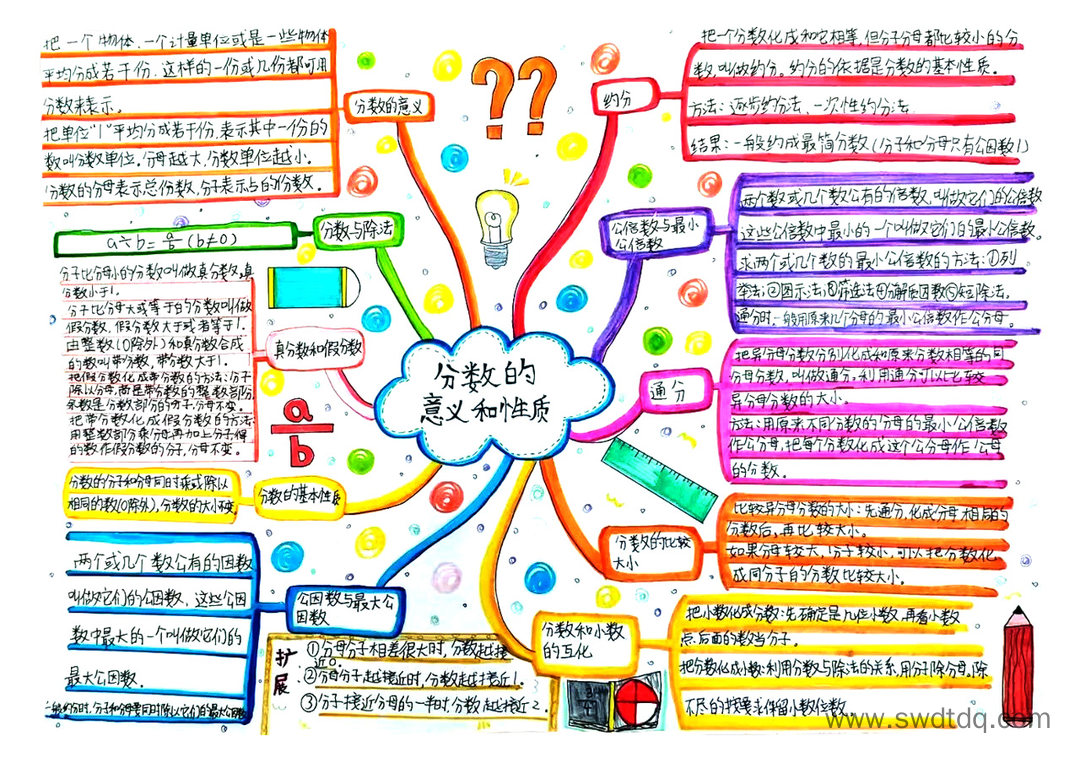 把一个物体.一个计量单位或是一些物体
平均分成若干份.这样的一份或几份都可用
分数来表示。
把单位"1"平均分成若干份.表示其中一份的
数叫分数单位,分母越大,分数单位越小。
分数的分母表示总份数,分子表示占的份数.
分数的意义
a÷b=a/b(b≠0)
分数与除法
分子比分母小的分数叫做真分数,真
分数小于1.
分子比分母大或等于的分数叫做
假分数,假分数大于或者等于1.
由整数(0除外)和真分数合成
的数叫带分数,带分数大于1.
把假分数化成带分数的方法:分子
除以分母,商是带分数的整数部分,
余数是分数部分的分子,分母不变.
把带分数化成假分数的方法:
用整数部分乘分母再加上分子得
的数作假分数的分子,分母不变.
真分数和假分数
a
b
分数的分子和分母同时乘或除以
相同的数(0除外),分数的大小不变.
分数的基本性质
两个或几个数公有的因数
叫做它们的公因数、这些公因
数中最大的一个叫做它们的
最大公因数.
一般约分时,分子和分母要同时除以它们的最大公因数
公因数与最大公
因数
扩展
①分母分子相差很大时,分数越接
近0。
②分母分子越接近时,分数越接近1.
③分子接近分母的一半时,分数越接近
??
分数的
意义和性质
约分
把一个分数化成和它相等,但分子分母都比较小的分
数,叫做约分。约分的依据是分数的基本性质.
方法:逐步约分法、一次性约分法.
结果:一般约成最简分数(分子和分母只有公因数1)
公倍数与最小
公倍数
两个数或几个数公有的倍数,叫做它们的公倍数
这些公倍数中最小的一个叫做它们的最小公倍数。
求两个或几个数的最小公倍数的方法:①列
举法;②图示法;③筛选法④分解质因数⑤短除法.
通分时,一般用原来几个分母的最小公倍数作公分母.
通分
把异分母分数分别化成和原来分数相等的同
分母分数,叫做通分。利用通分可以比较
异分母分数的大小。
方法:用原来不同分数的分母的最小公倍数
作公分母,把每个分数化成这个公分母作公母
的分数.
分数的比较
大小
比较异分母分数的大小:先通分,化成分母相同的
分数后,再比较大小。
如果分母较大,分子较小,可以把分数化
成同分子的分数比较大小。
分数和小数
的互化
把小数化成分数:先确定是几位小数,再看小数
点后面的数当分子.
把分数化成小数:利用分数与除法的关系,用分子除分母,除
不尽的按要求保留小数位数.
www.swdtdq.com